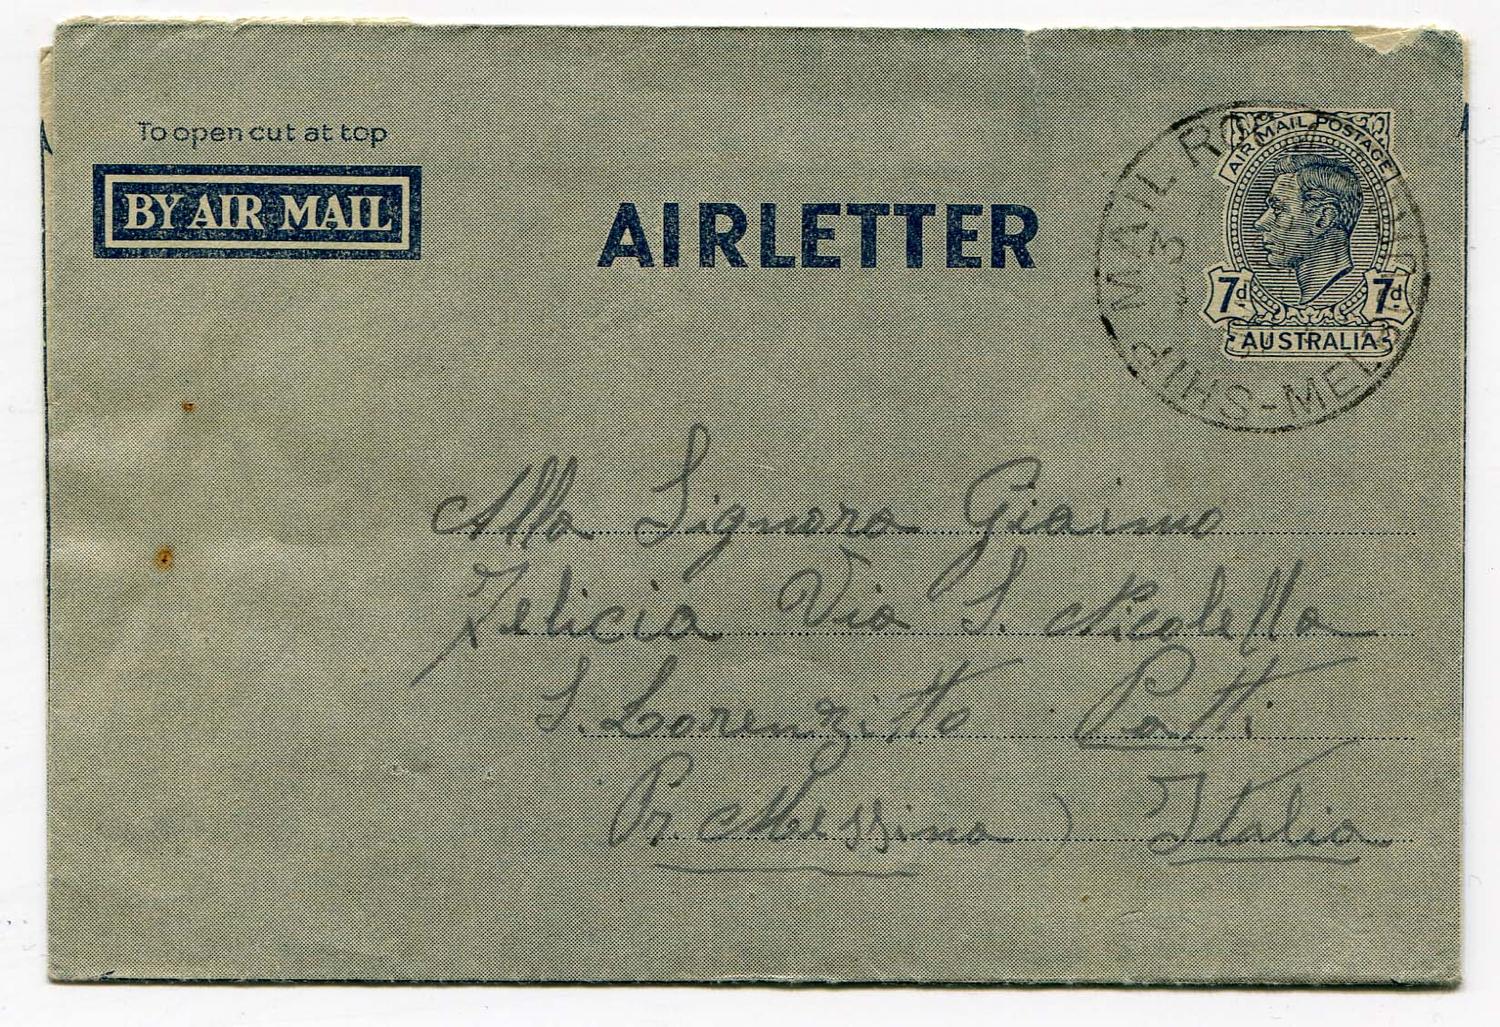 To open cut at top
BY AIR MAIL
AIRLETTER
AIR MAIL POSTAGE
7d. 7d.
AUSTRALIA
MAIL RO
3
SHIPS-MEL
Alla Signora Giaimo
Felicia Via S. Nicolella
S. Lorenzitto Patti
Pr. Messina ) Italia